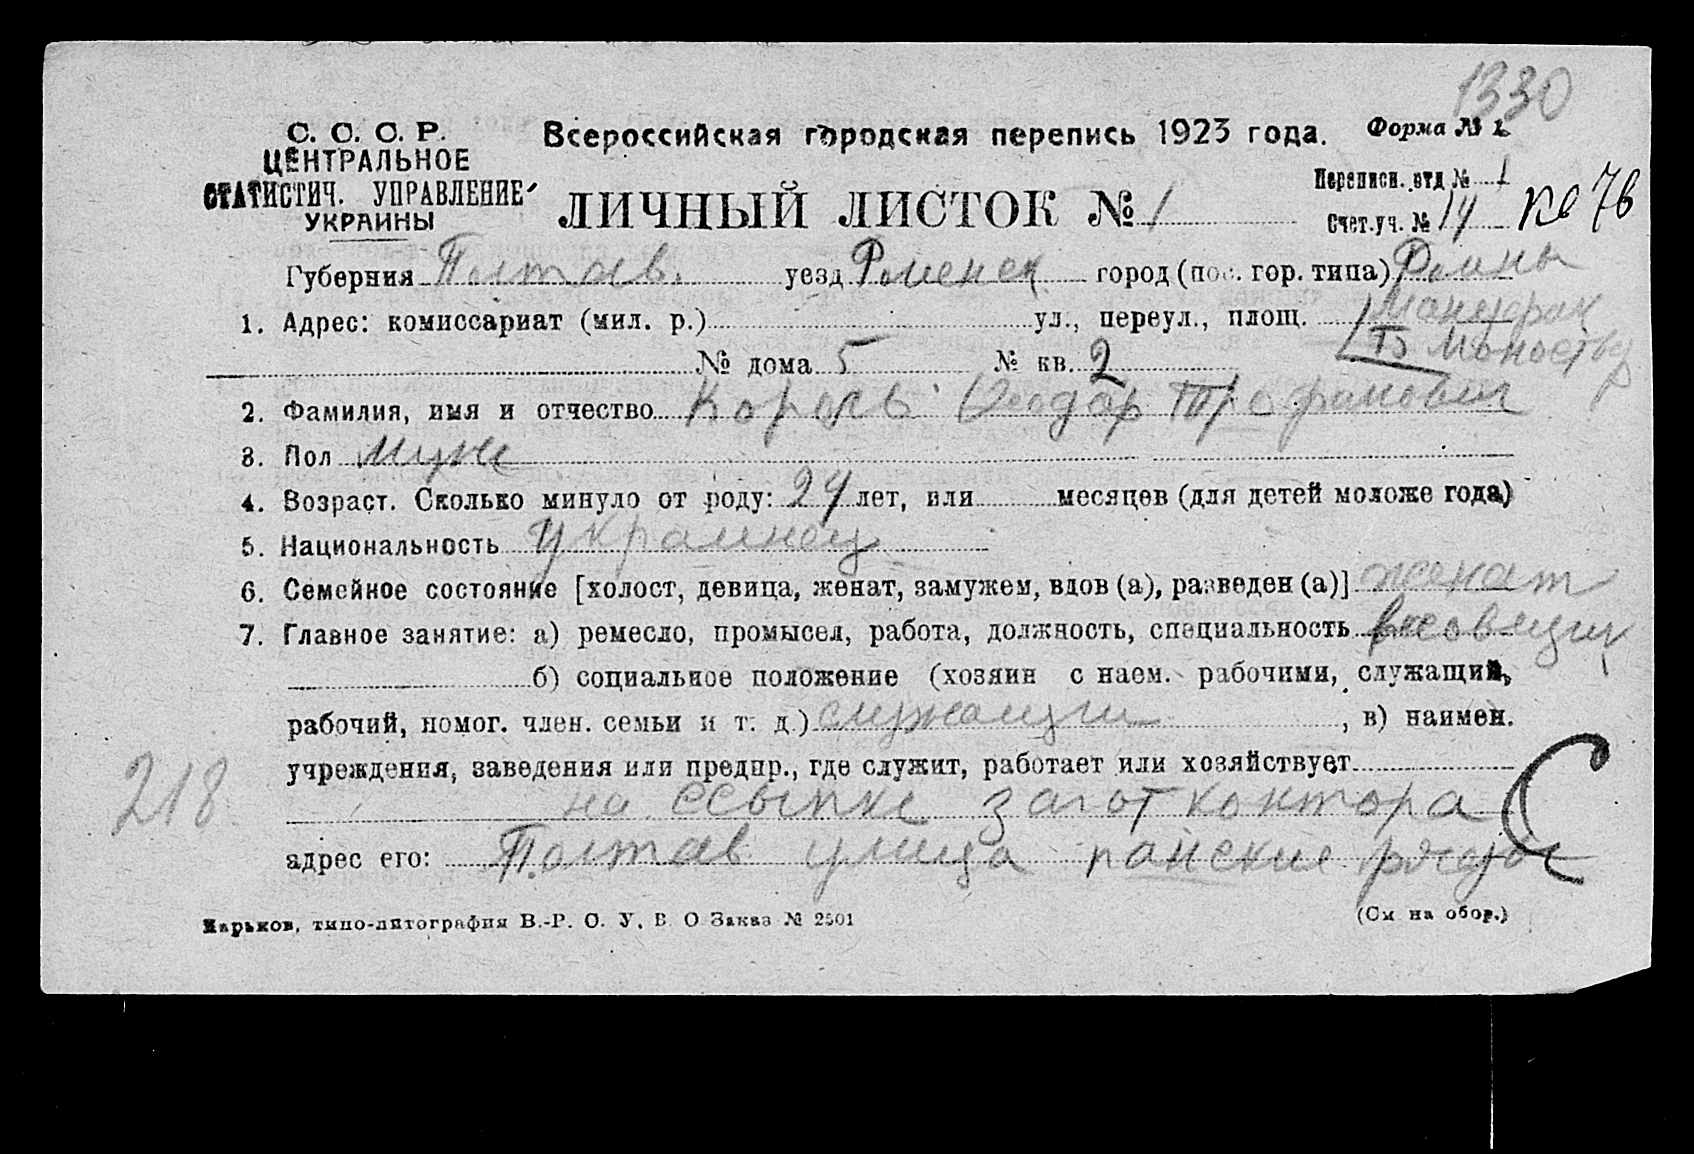 1330
С. С. С. Р.
ЦЕНТРАЛЬНОЕ
СТАТИСТИЧ. УПРАВЛЕНИЕ
УКРАИНЫ
Всероссийская городская перепись 1923 года.
Форма № 1.
ЛИЧНЫЙ ЛИСТОК № 1
Переписн. отд № 1
Счет.уч. № 14
Губерния Полтав. уезд Роменск город (пос. гор. типа) Ромны
1. Адрес: комиссариат (мил. р.) ул., переул., площ.
№ дома 5 № кв. 2
2. Фамилия, имя и отчество Король Феодор Трофимович
3. Пол муже
4. Возраст. Сколько минуло от роду: 24 лет, или месяцев (для детей моложе года)
5. Национальность Украинец
6. Семейное состояние [холост, девица, женат, замужем, вдов (а), разведен (а)] женат
7. Главное занятие: а) ремесло, промысел, работа, должность, специальность весовщик
б) социальное положение (хозяин с наем. рабочими, служащий,
рабочий, помог. член. семьи и т. д.) служащий, в) наимен.
учреждения, заведения или предпр., где служит, работает или хозяйствует
на ссыпке загот контора
С
218
адрес его: Полтав улица панские ряды
Харьков, типо-литография В.-Р. О. У. В. О Заказ № 2501
(См на обор.)